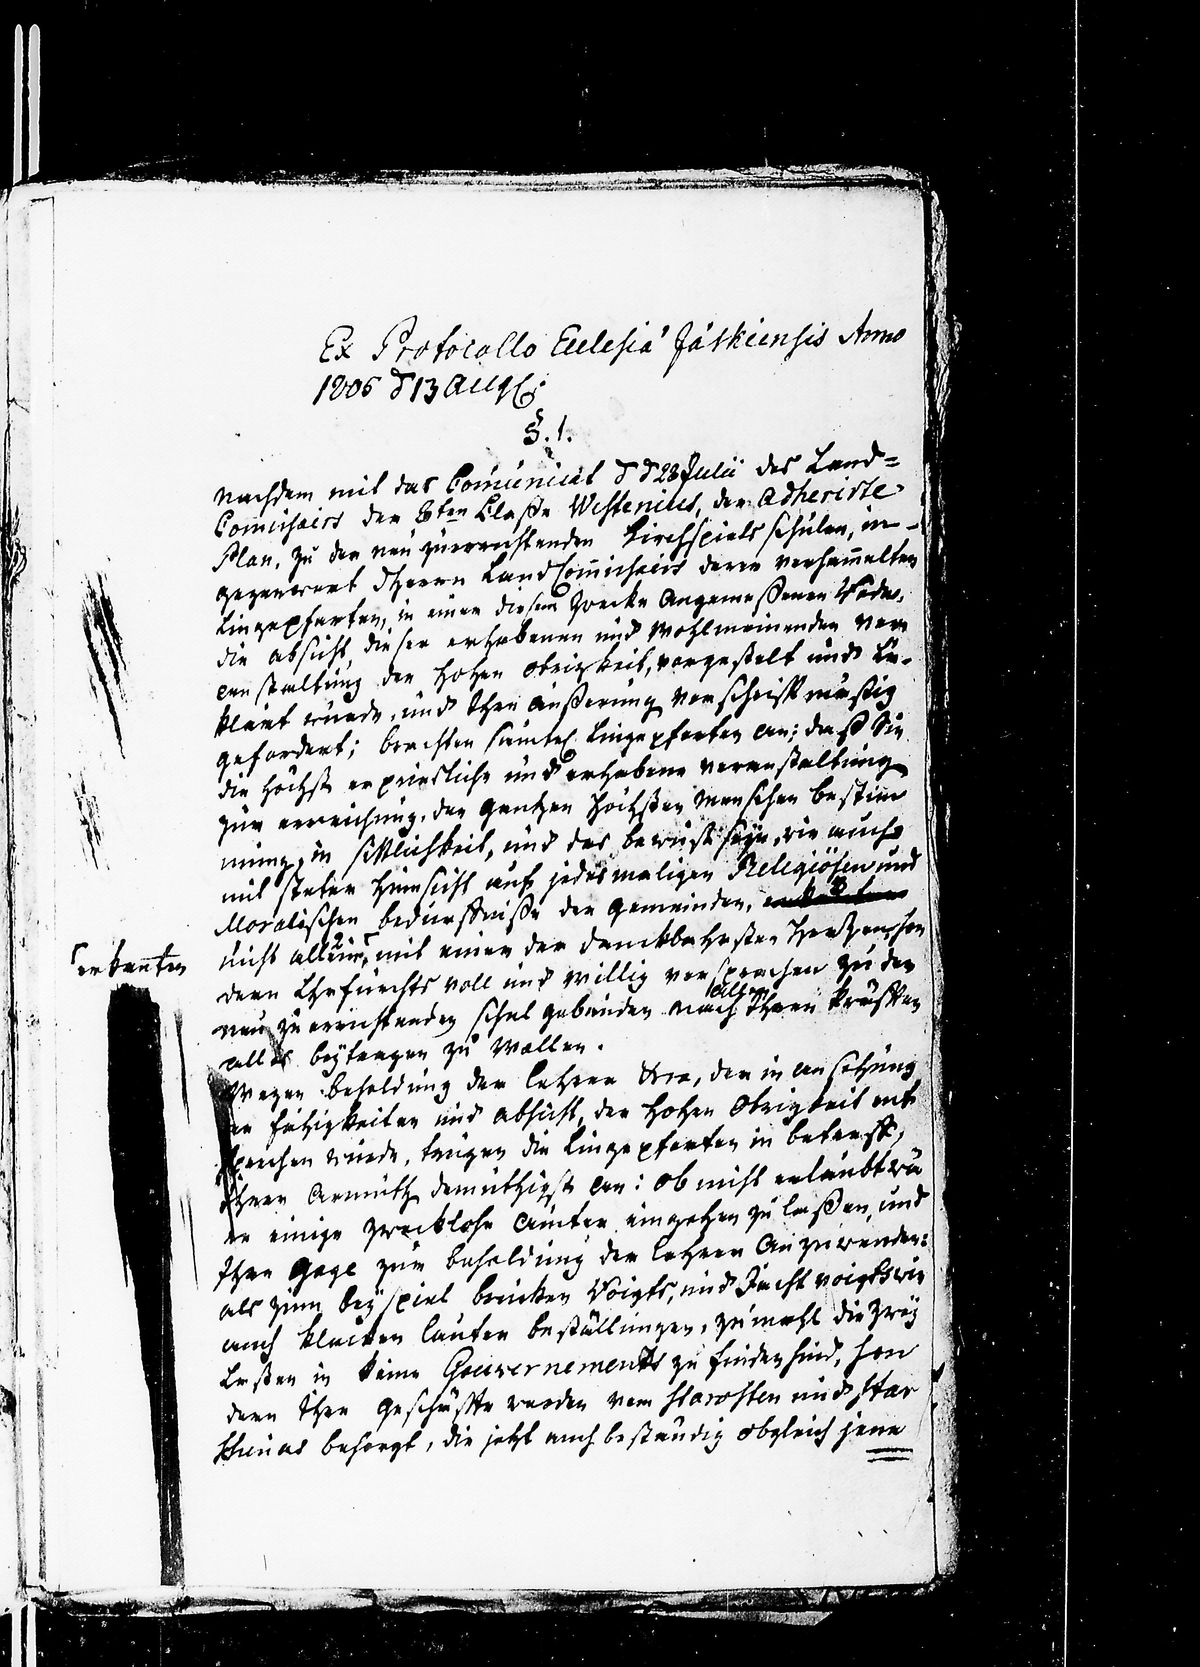 Ex Protocollo Ecclesiä Jäskiensis Anno
1805 d 13 Aug:
§. 1.
Nachdem mit das Comunicat d d 28 Julii des Land=
Comissairs der 8ten Classe Westenius, der Adherirte
Plan, zu der neu zuerrichtenden Kirchspiels schulen, in
gegenwart Herrn Land Comissairs denen versamelten
Eingepfarten, in einer diesem Zwecke Angemeßenen Rede,
die absicht, dieser erhabenen und Wohlmeinenden Ver
anstaltung der hohen obrigkeit, vorgestelt und Er-
klärt wurde, und Ihre äußerung vorschriftmäsig
gefordert; brachten sämtl. Eingepfarten an; daß Sie
die höchst erspriesliche und erhabene veranstaltung
zur erreichung, der gantzen höchsten Menschen bestim
mung, in sittlichkeit, und das bewust seyn, wie auch
mit steter hinsicht auf jedesmaligen Religiösen und
Moralischen bedürfniße der Gemeinden,
erkanten
nicht allein, mit einer der danckbahrsten Hertzen, son
dern Ehrfurchts voll und willig versprechen zu der
neu zu errichtenden schul gebäuden nach allen Ihren kräfften
alles beytragen zu Wollen.
Wegen besoldung der lehrer &c, der in ansehung
er fähigkeiten und absicht, der hohen Obrigkeit ent
sprechen würde, trugen die Eingepfarten in betreff,
Ihrer Armuth demüthigst an: ob nicht erlaubt wä
re einige zwecklose ämter eingehen zu laßen, und
Ihre Gage zur besoldung der lehrer Anzuwenden:
als zum beyspiel brücken Voigts, und Jacht voigts wie
auch klocken läuter beställungen, zumahl die zwey
Ersten in keine Gouvernements zu finden sind, son
dern Ihre geschäffte werden vom Starosten und Star
schinas besorgt, die jetzt auch beständig obgleich jene